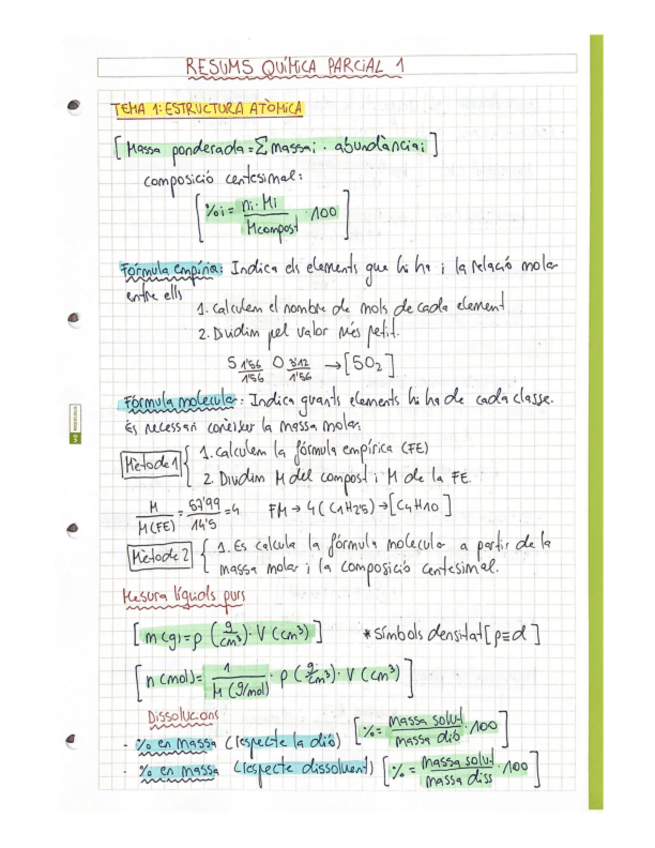 RESUMS QUÍMICA PARCIAL 1
TEMA 1: ESTRUCTURA ATÒMICA
[Massa ponderada = Σ massaᵢ · abundànciaᵢ]
composició centesimal:
[%i = nᵢ·Mᵢ / Mcompost · 100]
Fórmula empírica: Indica els elements que hi ha i la relació molar
entre ells
1. Calculem el nombre de mols de cada element
2. Dividim pel valor més petit.
S 1'56/1'56 O 3'12/1'56 → [SO₂]
Fórmula molecular: Indica quants elements hi ha de cada classe.
És necessari conèixer la massa molar.
Mètode 1 { 1. Calculem la fórmula empírica (FE)
2. Dividim M del compost i M de la FE.
M / M(FE) = 57'99 / 14'5 = 4 FM → 4(C1H2'5) → [C4H10]
Mètode 2 { 1. Es calcula la fórmula molecular a partir de la
massa molar i la composició centesimal.
Mesura líquids purs
[m(g) = ρ (g/cm³) · V (cm³)] * símbols densitat [ρ≡d]
[n(mol) = 1 / M (g/mol) · ρ (g/cm³) · V (cm³)]
Dissolucions
· % en massa (respecte la dió) [% = massa solut / massa dió · 100]
· % en massa (respecte dissolvent) [% = massa solut / massa diss · 100]